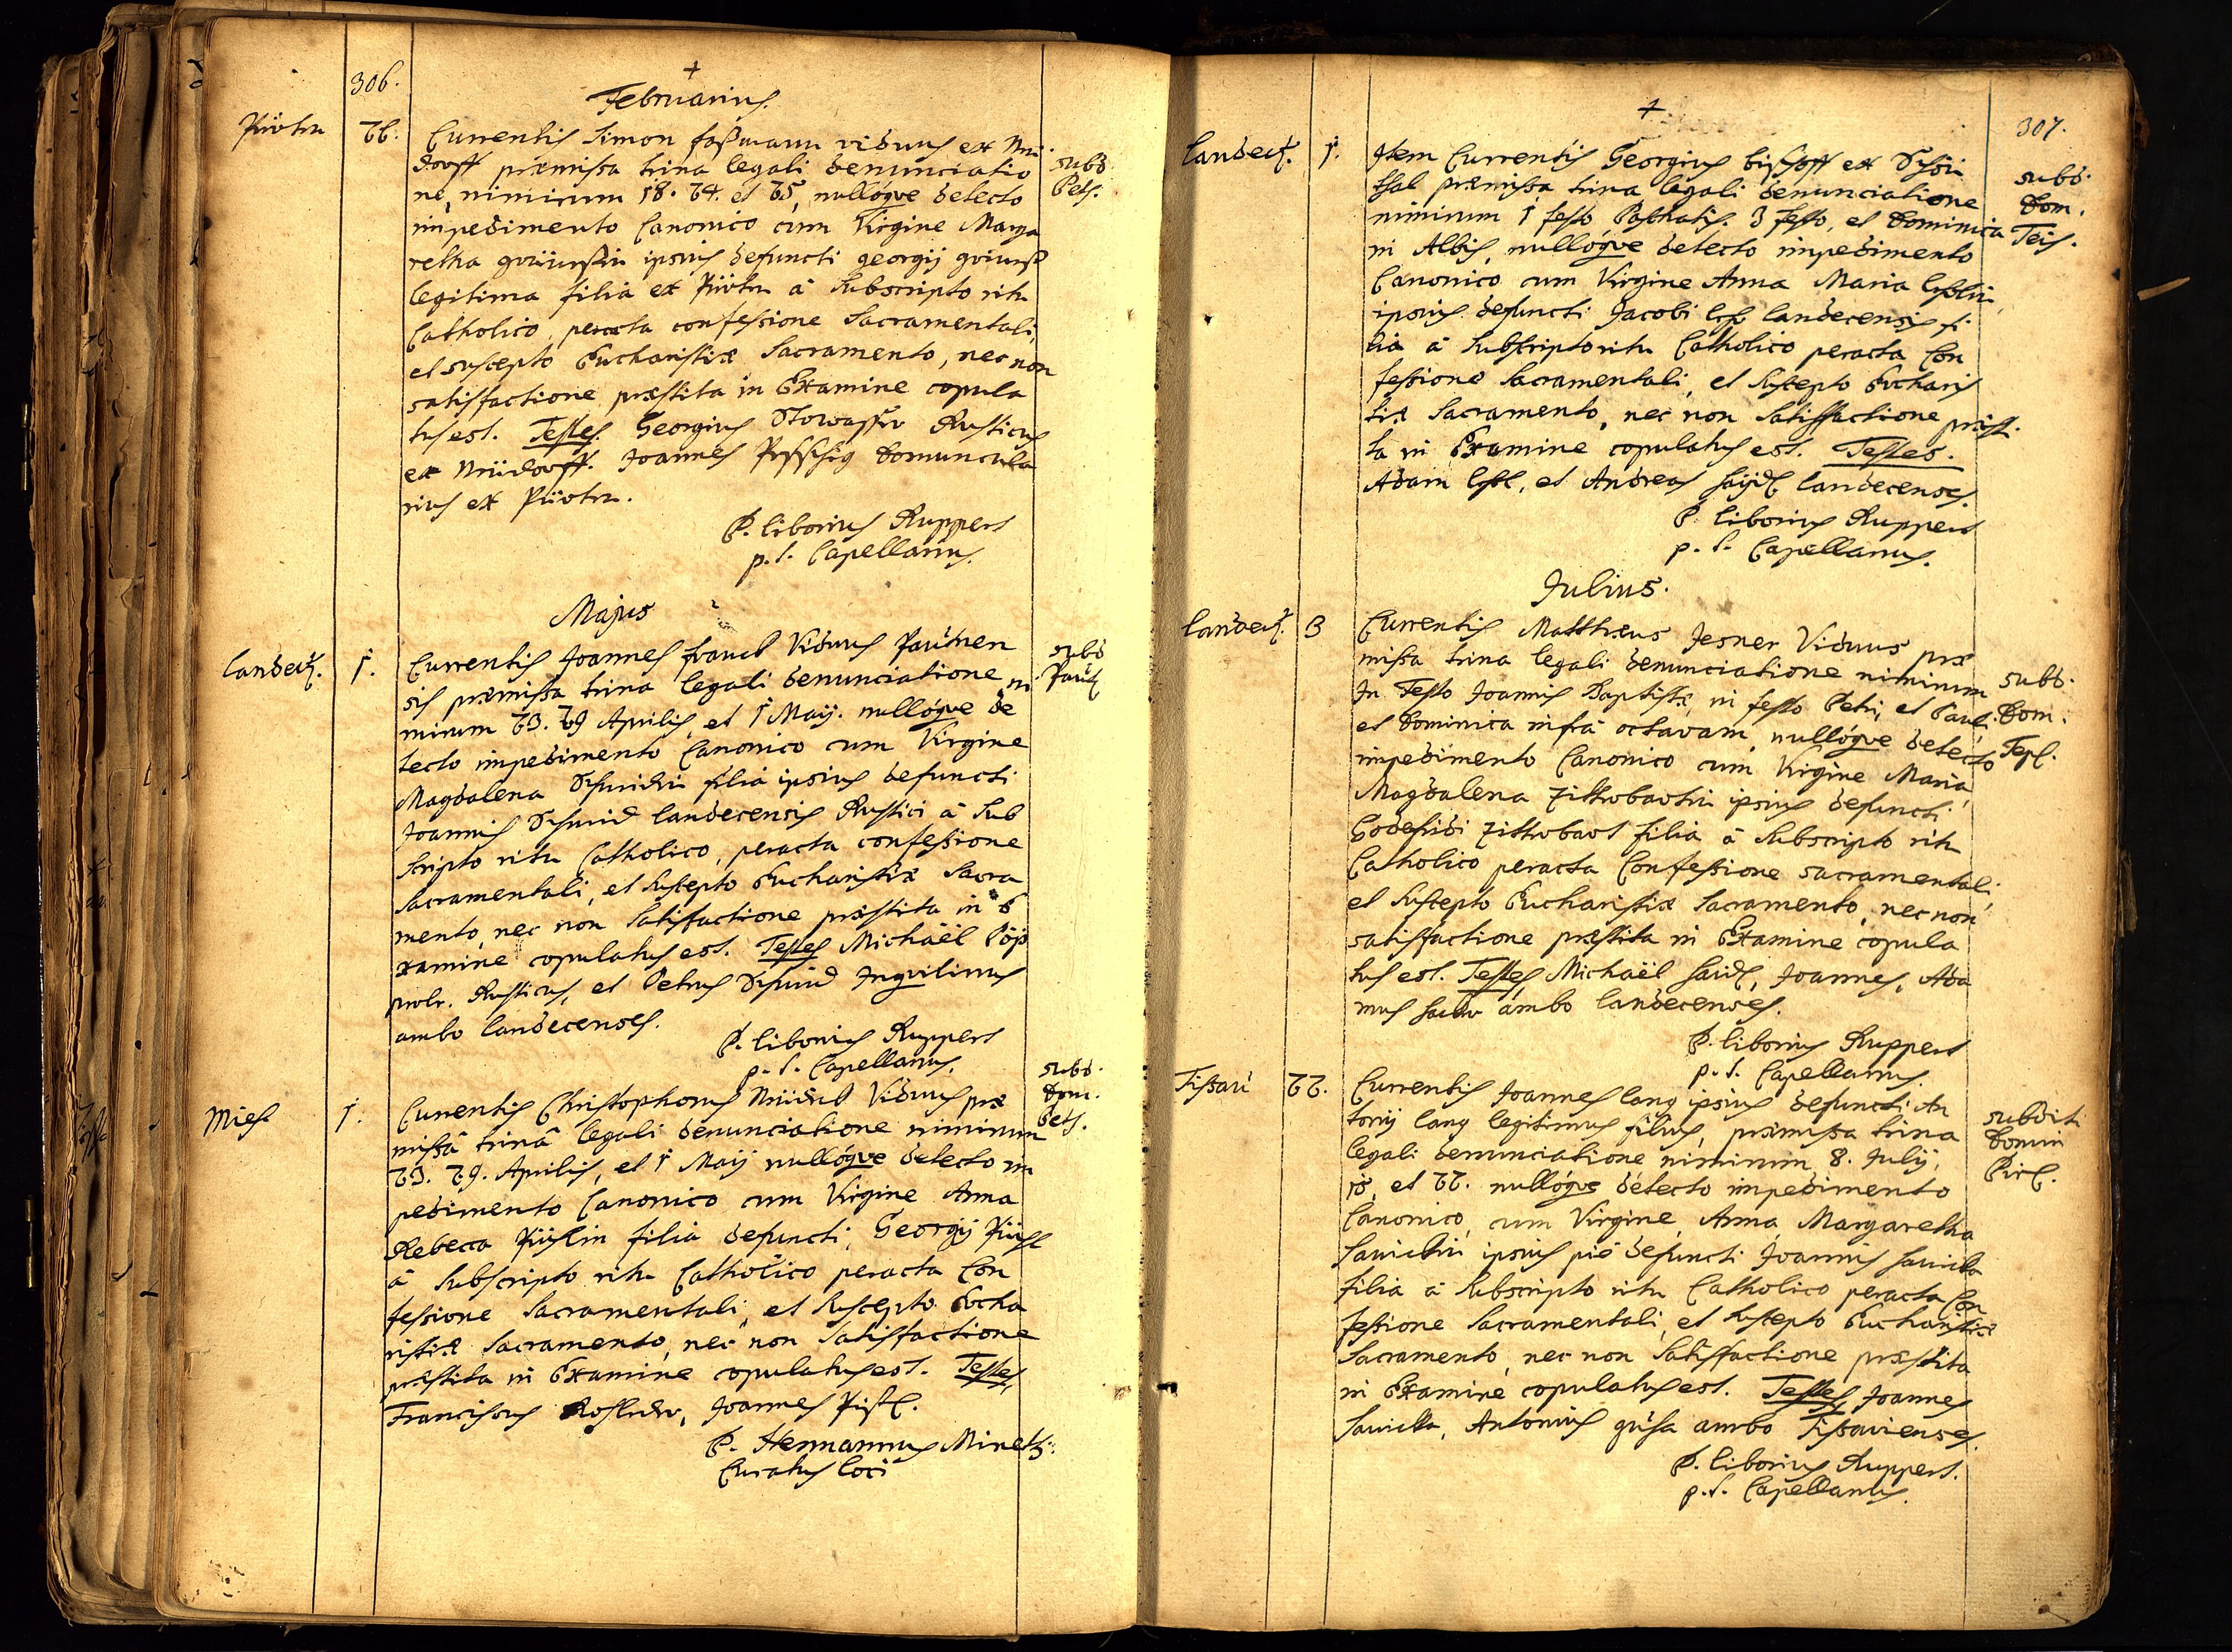 306.
+
Februarius.
Pürten
26.
Currentis Simon faßmann viduus ex Neü
dorff præmissa trina legali denunciatio
ne, nimirum 18. 24. et 25, nullóqve detecto
impedimento Canonico cum Virgine Marga
retha ipsius defuncti georgij
legitima filia ex Pürten à Subscripto ritu
Catholico, peracta confessione Sacramentali,
et suscepto Eucharistiæ Sacramento, nec non
satisfactione præstita in Examine copula
tus est. Testes. Georgius Stowasser Rusticus
ex Neüdorff. Joannes domuncula
rius ex Pürten.
subd
Pets.
P. Liborius Ruppert
p. t. Capellanus.
Majus
Landeck.
1.
Currentis Joannes franck Viduus Pauten
sis præmissa trina legali denunciatione ni
mirum 23. 29 Aprilis, et 1 Maij. nullóqve de
tecto impedimento Canonico cum Virgine
Magdalena Schmidin filia ipsius defuncti
Joannis Schmid Landecensis Rustici à Sub
scripto ritu Catholico, peracta confessione
Sacramentali, et suscepto Eucharistiæ Sacra
mento, nec non Satisfactione præstita in E
xamine copulatus est. Testes Michaël
Rusticus, et Petrus Schmid Inqvilinus
ambo Landecenses.
subd
P. Liborius Ruppert
p. t. Capellanus.
Mies
1.
Currentis Christophorus Viduus præ
missâ trinâ legali denunciatione nimirum
23. 29. Aprilis, et 1 Maij nullóqve detecto im
pedimento Canonico cum Virgine Anna
Rebecca filia defuncti Georgij
à Subscripto ritu Catholico peracta Con
fessione Sacramentali, et suscepto Eucha
ristiæ Sacramento, nec non Satisfactione
præstita in Examine copulatus est. Testes
Franciscus Joannes
subd.
Dom.
Pets.
P. Hermannus Minetti
Curatus loci
+
307.
Landeck.
1.
Item Currentis Georgius bischoff ex Schön
thal præmissa trina legali denunciatione
nimirum 1 festo Paschatis. 3 festo, et Dominica
in Albis, nullóqve detecto impedimento
Canonico cum Virgine Anna Maria
ipsius defuncti Jacobi Landecensis fi
lia à Subscripto ritu Catholico peracta Con
fessione Sacramentali, et suscepto Eucharis
tiæ Sacramento, nec non Satisfactione præsti
ta in Examine copulatus est. Testes.
Adam et Andreas Landecenses.
subd.
Dom.
P. Liborius Ruppert
p. t. Capellanus.
Julius.
Landeck.
3
Currentis Matthæus Jesner Viduus præ
missa trina legali denunciatione nimirum
In Festo Joannis Baptistæ, in festo Petri, et Pauli,
et Dominica infrà octavam, nullóqve detecto
impedimento Canonico cum Virgine Maria
Magdalena Zitterbartin ipsius defuncti
Godefridi Zitterbart filia à Subscripto ritu
Catholico peracta Confessione sacramentali,
et suscepto Eucharistiæ Sacramento, nec non
satisfactione præstita in Examine copula
tus est. Testes, Michaël Joannes, Ada
mus ambo Landecenses.
subd.
Dom.
Tepl.
P. Liborius Ruppert
p. t. Capellanus.
Tissau
22.
Currentis Joannes lang ipsius defuncti An
tonij lang legitimus filius, præmissa trina
legali denunciatione nimirum 8. Julij,
15, et 22. nullóqve detecto impedimento
Canonico, cum Virgine Anna Margaretha
ipsius piè defuncti Joannis
filia à Subscripto ritu Catholico peracta Con
fessione Sacramentali, et suscepto Eucharistiæ
Sacramento, nec non Satisfactione præstita
in Examine copulatus est. Testes, Joannes
Antonius ambo Tissavienses.
subditi
Domin
P. Liborius Ruppert.
p. t. Capellanus.